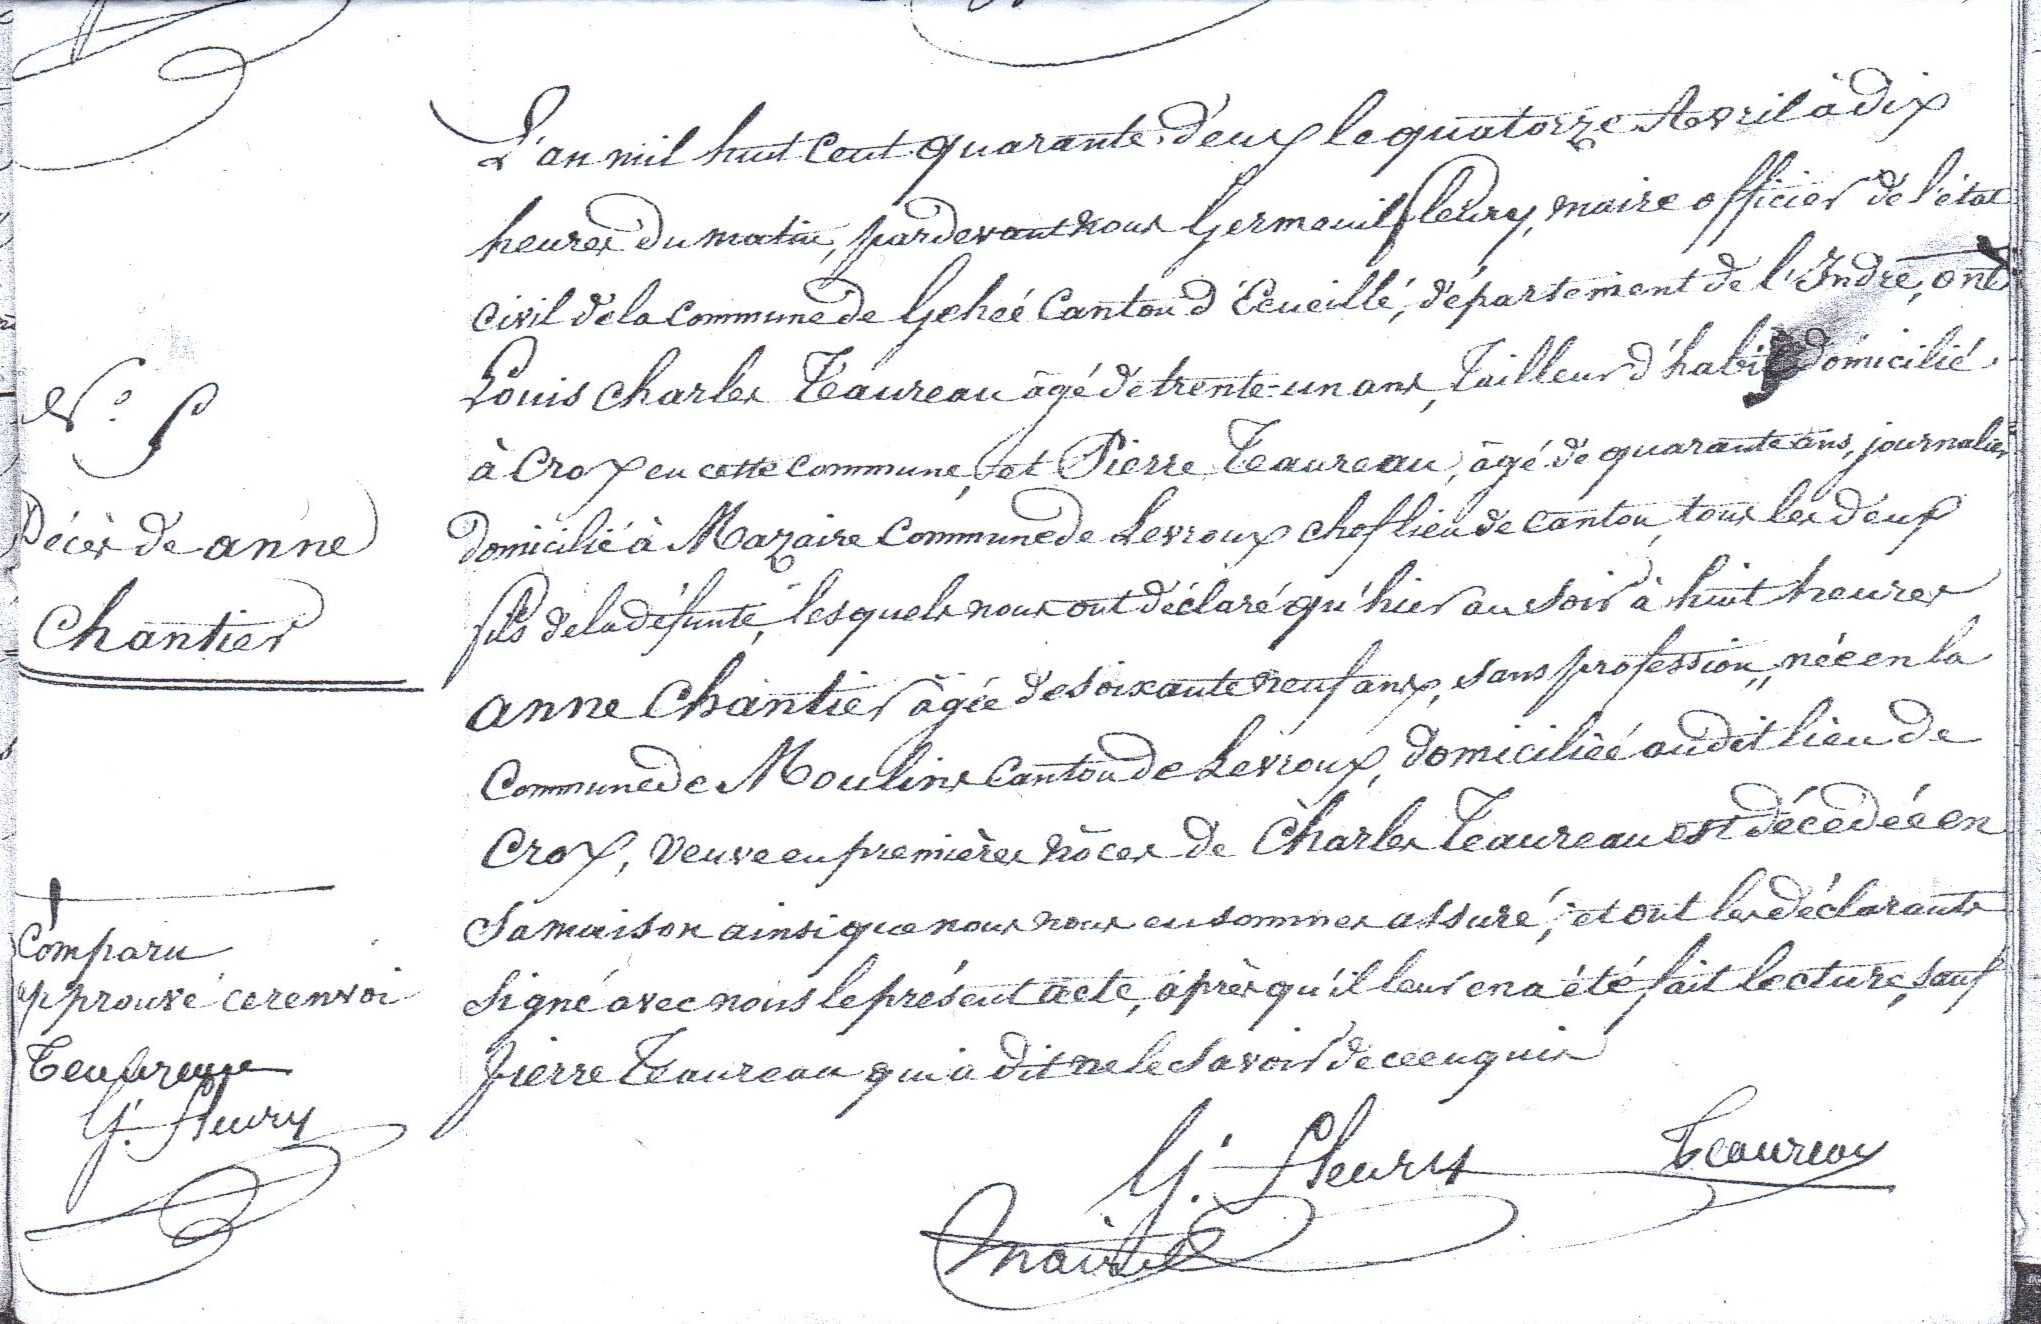 N.° 5
Décès de anne
Chantier
Comparu
approuvé ce renvoi
Teaureau
G. Fleury
L'an mil huit cent quarante-deux le quatorze Avril à dix
heures du matin, pardevant nous Germeuil fleury, maire officier de l'état
civil de la commune de Gehée Canton d'Ecueillé, département de l'Indre, ont
Louis Charles Teaureau âgé de trente-un ans, Tailleur d'habits domicilié
à Crox en cette commune, et Pierre Teaureau, âgé de quarante ans, journalier
domicilié à Mazaire Commune de Levroux chef lieu de canton, tous les deux
fils de la défunte, lesquels nous ont déclaré qu'hier au soir à huit heures
anne Chantier âgée de soixante neuf ans, sans profession, née en la
Commune de Moulins Canton de Levroux, domiciliée audit lieu de
Crox, veuve en premières nôces de Charles Teaureau est décédée en
sa maison ainsi que nous nous en sommes assuré, et ont les déclarants
signé avec nous le présent acte, après qu'il leur en a été fait lecture, sauf
pierre Teaureau qui a dit ne le savoir de ce enquis
G. Fleury Teaureau
maire